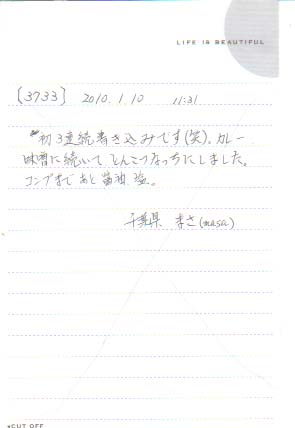 LIFE IS BEAUTIFUL
[3733] 2010.1.10 11:31
初3連続書き込みです(笑)。カレー
味噌に続いて とんこつなっちにしました。
コンプまで あと 醤油、塩。
千葉県 まさ(masa)
*CUT OFF